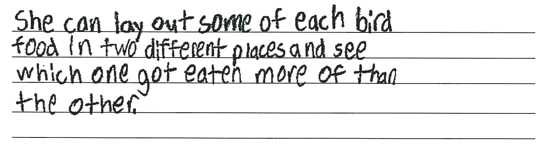 She can lay out some of each bird
food in two different places and see
which one got eaten more of than
the other.